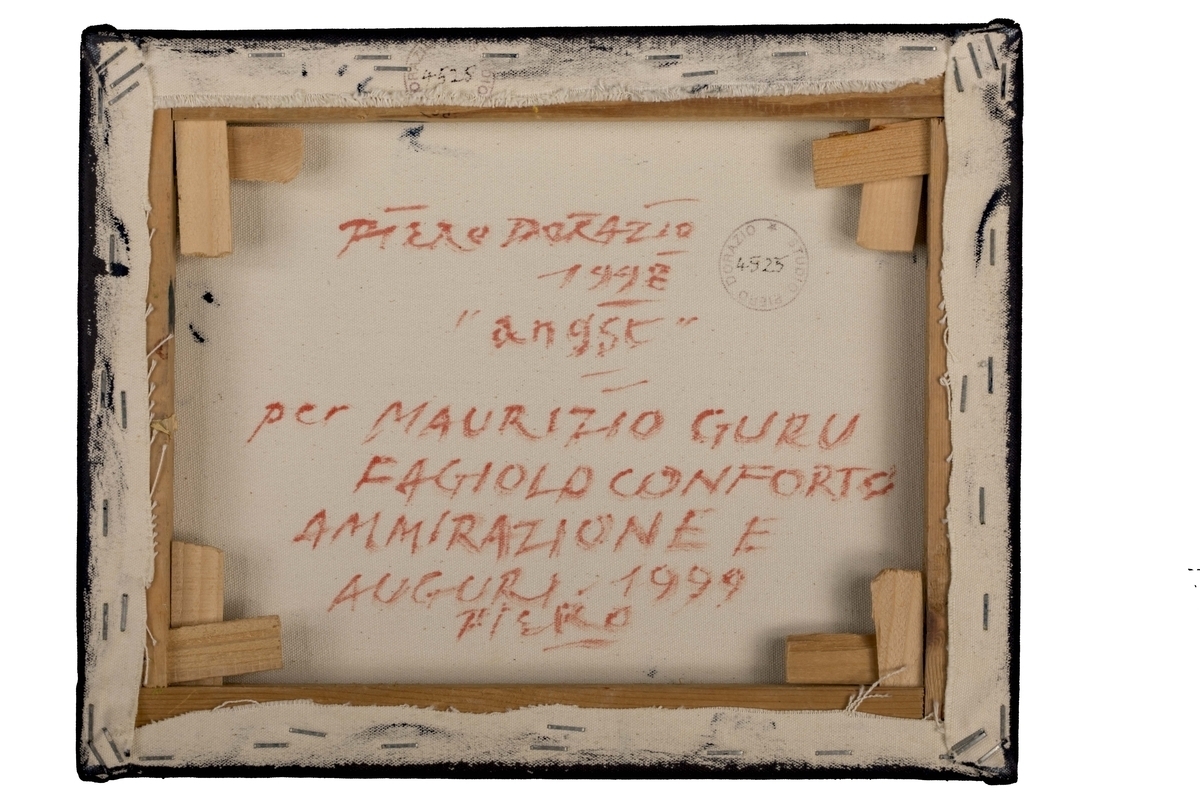 4525
PIERO DORAZIO
1998
"angst"
STUDIO PIERO DORAZIO
4525
per MAURIZIO GURU
FAGIOLO CON FORTE
AMMIRAZIONE E
AUGURI. 1999
PIERO